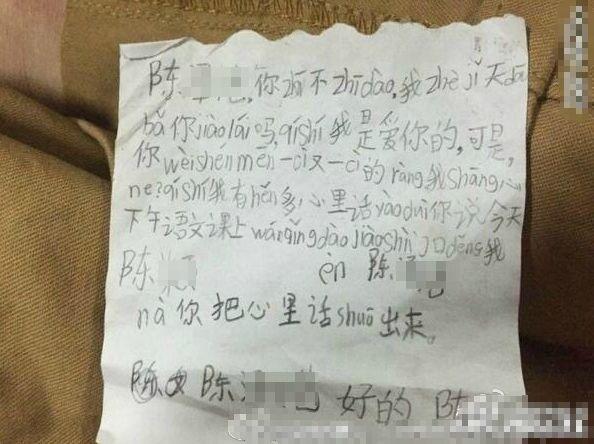 陈 你zhī不zhīdào,我zhè jǐ天dōu
bǎ你jiào lái吗,qíshí我是爱你的,可是,
你wèishén mēn一cì又一cì的ràng我shāng心
ne?qíshí我有hěn多心里话yào duì你说今天
下午语文课上wánqǐng dào jiàoshì门口děng我
陈 èn 陈
nà你把心里话shuō出来。
陈 陈 好的